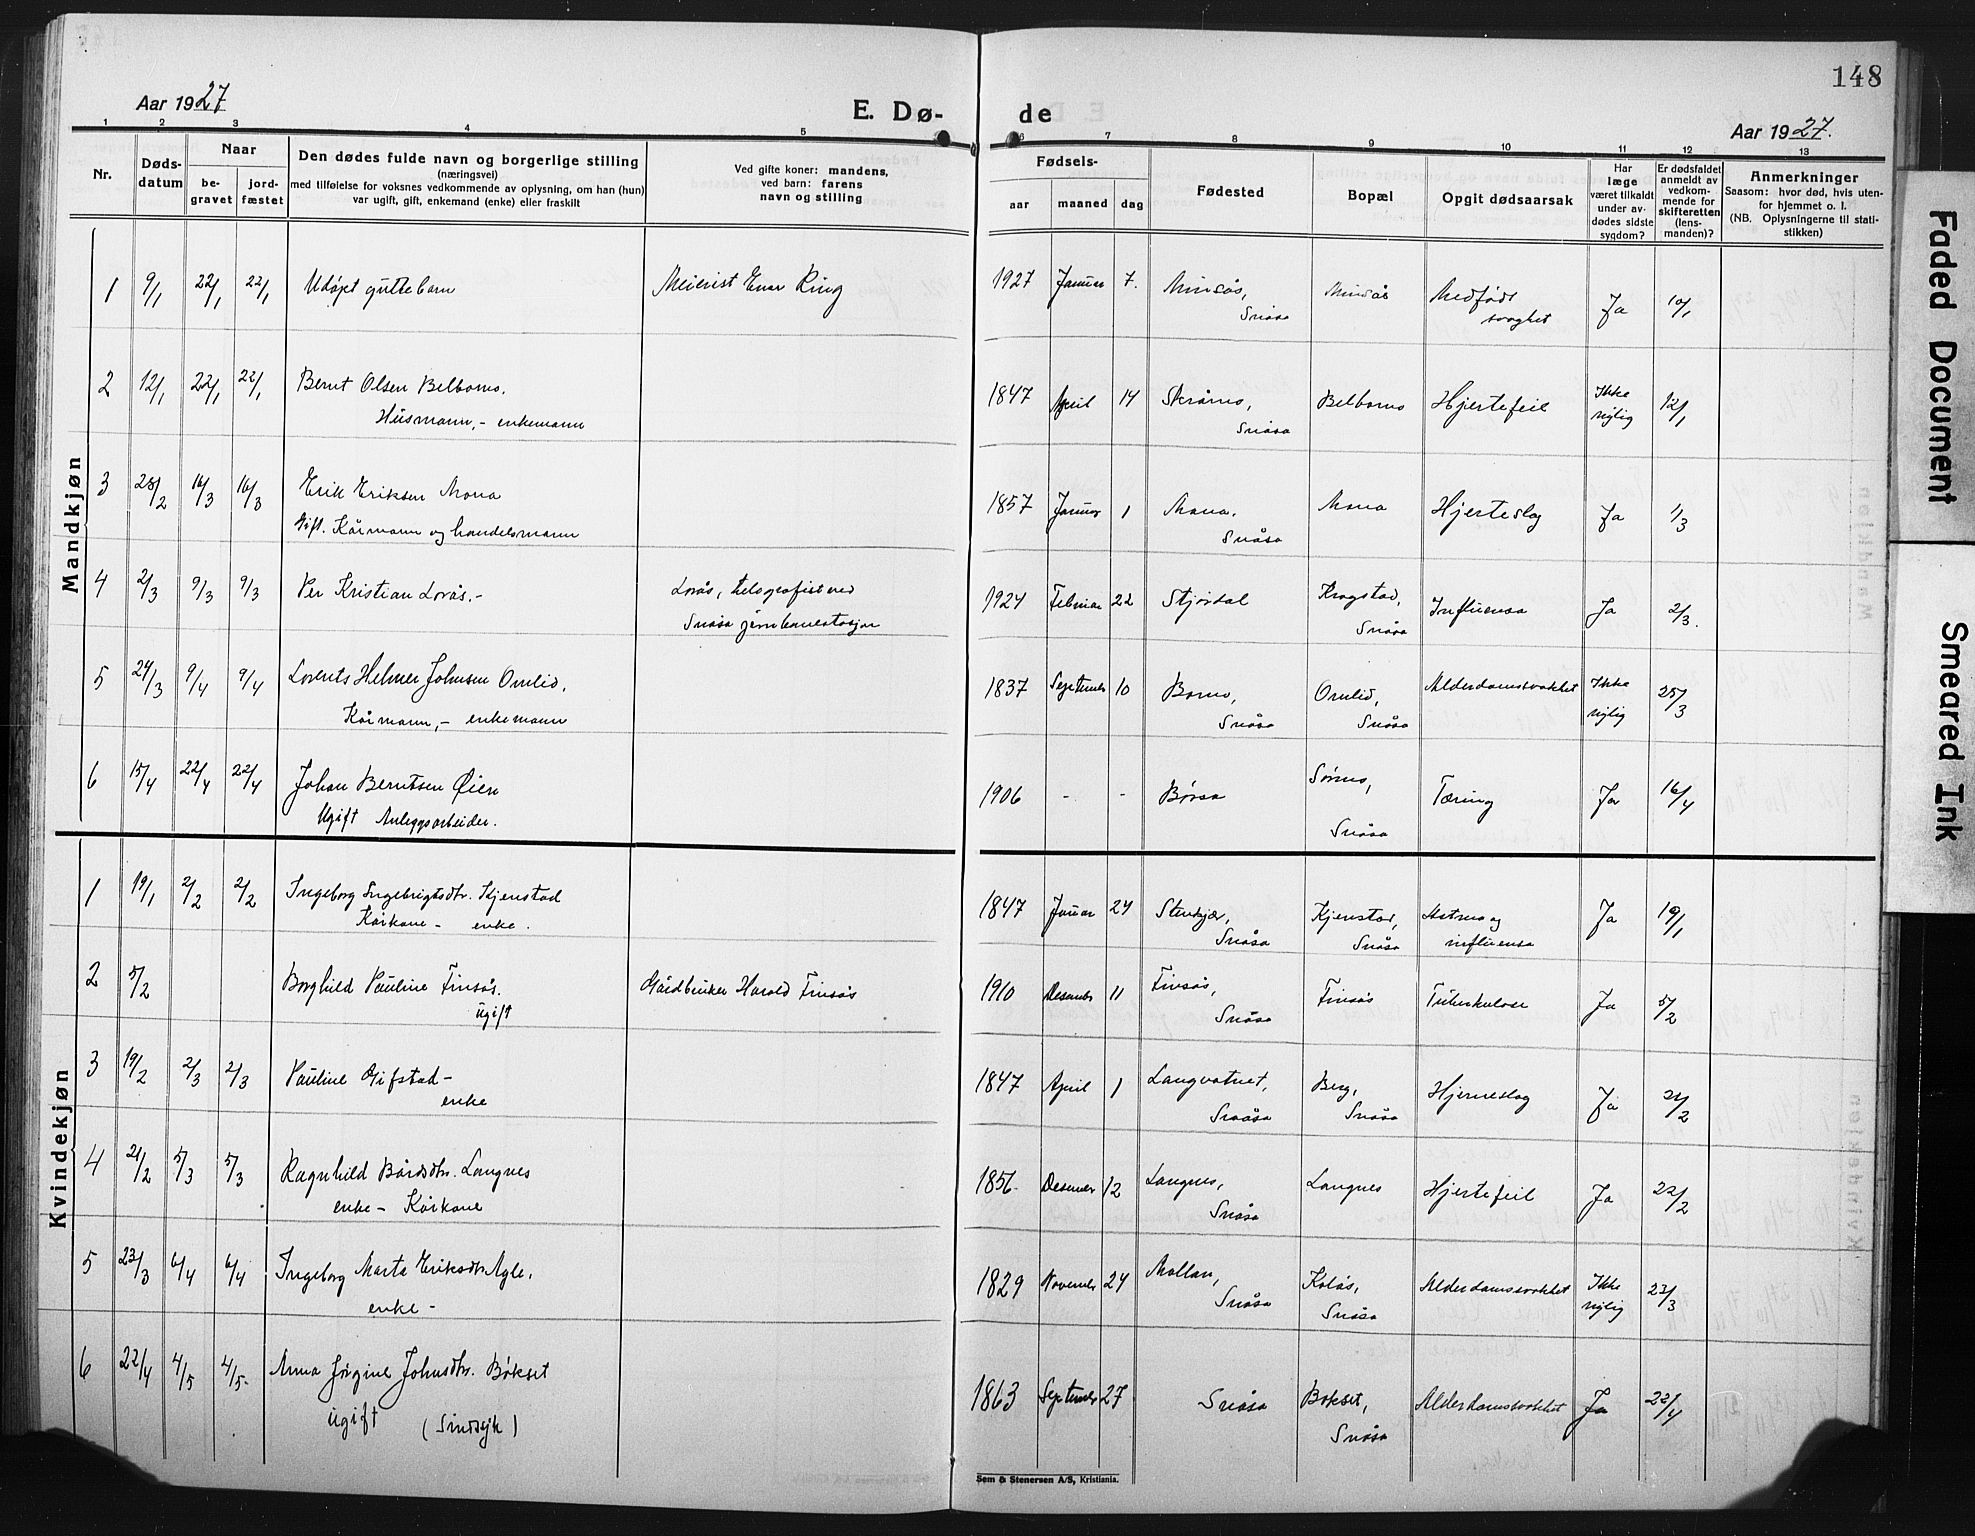 148
Aar 1927
E. Dø-
de
Aar 1927.
1 2 3 4 5
6 7 8 9 10 11 12 13
Nr.
Døds-
datum
Naar
be-
gravet
jord-
fæstet
Den dødes fulde navn og borgerlige stilling
(næringsvei)
med tilføielse for voksnes vedkommende av oplysning, om han (hun)
var ugift, gift, enkemand (enke) eller fraskilt
Ved gifte koner: mandens,
ved barn: farens
navn og stilling
Fødsels-
aar maaned dag
Fødested
Bopæl
Opgit dødsaarsak
Har
læge
været tilkaldt
under av-
dødes sidste
sygdom?
Er dødsfaldet
anmeldt av
vedkom-
mende for
skifteretten
(lens-
manden)?
Anmerkninger
Saasom: hvor død, hvis uten-
for hjemmet o. l.
(NB. Oplysningerne til stati-
stikken)
Mandkjøn
1 9/1 22/1 22/1 Udøpt guttebarn Meierist Enar Ring 1927 Januar 7. Minsås, Minsås Medfødt Ja 10/1
Snåsa svaghet
2 12/1 22/1 22/1 Bernt Olsen Belbomo. 1847 April 14 Skråmo, Belbomo Hjertefeil Ikke 12/1
Husmann, - enkemann Snåsa nylig
3 28/2 16/3 16/3 Erik Eriksen Mona 1857 Januar 1 Mona, Mona Hjerteslag Ja 1/3
Gift. Kårmann og handelsmann Snåsa
4 2/3 9/3 9/3 Per Kristian Lorås. - Lorås, telegrafist ved 1924 Februar 22 Stjørdal Kragstad, Influensa Ja 2/3.
Snåsa jernbanestasjon Snåsa
5 24/3 9/4 9/4 Lorents Helmer Johnsen Omlid, 1837 September 10 Bomo, Omlid, Alderdomssvakhet Ikke 25/3
Kårmann, - enkemann Snåsa Snåsa nylig
6 15/4 22/4 22/4 Johan Berntsen Øien 1906 - - Børsa Sørmo, Tæring Ja 16/4
Ugift Anleggsarbeider. Snåsa
Kvindekjøn
1 19/1 2/2 2/2 Ingeborg Ingebrigtsdtr. Kjenstad 1847 Januar 24 Stenkjær, Kjenstad, Astma og Ja 19/1
Kårkone - enke. Snåsa Snåsa influensa
2 5/2 Borghild Pauline Finsås. Gårdbruker Harald Finsås 1910 Desember 11 Finsås, Finsås Tuberkulose Ja 5/2
ugift Snåsa
3 19/2 2/3 2/3 Pauline Gifstad - 1847 April 1 Langvatnet, Berg, Hjerneslag Ja 21/2
enke Snåsa Snåsa
4 21/2 5/3 5/3 Ragnhild Bårdsdtr. Langnes 1856 Desember 12 Langnes, Langnes Hjertefeil Ja 22/2
enke - Kårkone Snåsa
5 23/3 6/4 6/4 Ingeborg Marta Eriksdtr. Agle, 1829 November 24 Mollan, Kolås, Alderdomssvakhet Ikke 23/3
enke - Snåsa Snåsa nylig
6 22/4 4/5 4/5 Anna Jørgine Johnsdtr. Bøkset 1863 September 27 Snåsa Bøkset, Alderdomssvakhet Ja 22/4
ugift (Sindssyk) Snåsa
Sem & Stenersen A/S, Kristiania.
Faded Document
Smeared Ink